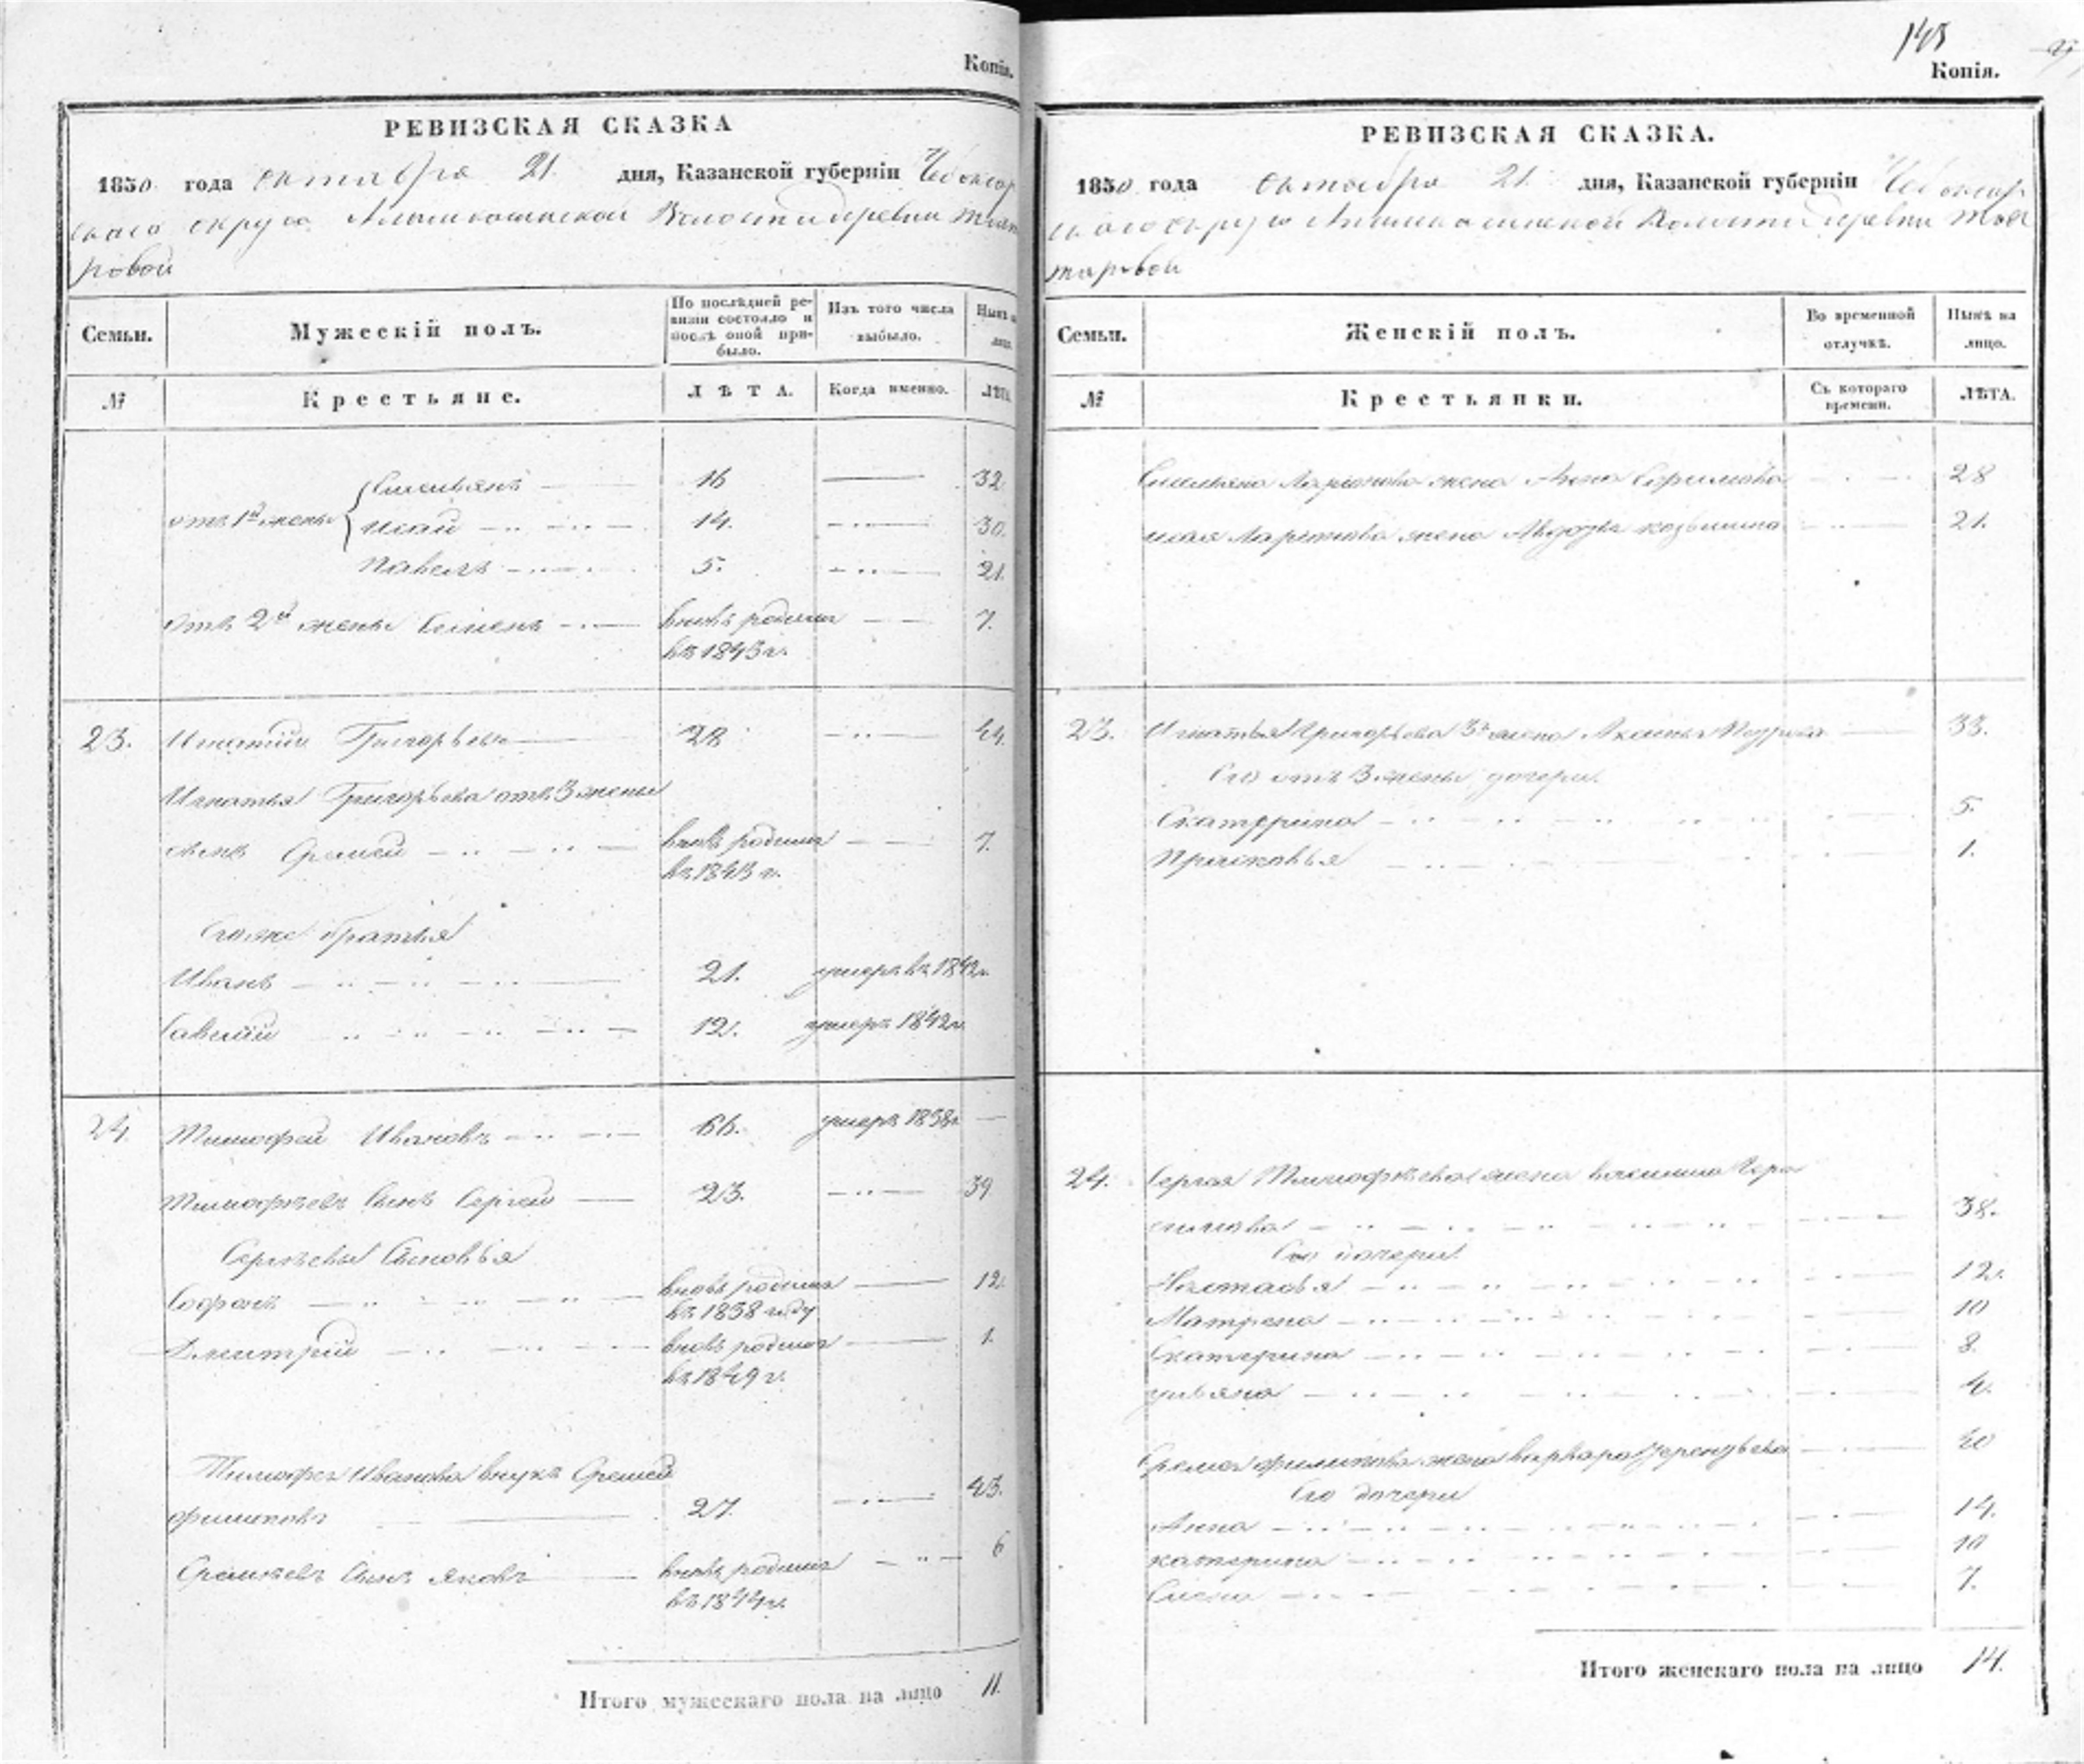 Копія.
РЕВИЗСКАЯ СКАЗКА
1850 года октября 21 дня, Казанской губерніи Чебоксар
скаго округа волости деревни
ровой
Семьи.
Мужескій полъ.
По послѣдней ре-
визіи состояло и
послѣ оной при-
было.
Изъ того числа
выбыло.
Нынѣ на
лицо.
№
Крестьяне.
ЛѢТА.
Когда именно.
ЛѢТА.
отъ 1й жены Емельянъ 16 32
Исай 14. 30.
Павелъ 5. 21.
отъ 2й жены Семенъ вновь родился 7.
въ 1843 г.
23. Игнатій Григорьевъ 28 44.
Игнатья Григорьева отъ 3 жены
сынъ Еремей вновь родился 7.
въ 1843 г.
Егоже братья
Иванъ 21. умеръ въ 1842 г.
Савелій 12. умеръ 1842 г.
24. Тимофей Ивановъ 66. умеръ 1838 г.
Тимофѣевъ сынъ Сергей 23. 39
Сергѣевы сыновья
Софонъ вновь родился 12.
въ 1838 году
Дмитрій вновь родился 1.
въ 1849 г.
Тимофея Иванова внукъ Еремей
Филиповъ 27. 43.
Еремѣевъ сынъ Яковъ вновь родился 6
въ 1844 г.
Итого мужескаго пола на лицо 11.
145
Копія.
РЕВИЗСКАЯ СКАЗКА.
1850 года октября 21. дня, Казанской губерніи Чебоксар
скаго округа волости деревни
таровой
Семьи.
Женскій полъ.
Во временной
отлучкѣ.
Нынѣ на
лицо.
№
Крестьянки.
Съ котораго
времени.
ЛѢТА.
Емельяна Ларіонова жена Анна Ефимова 28
Исая Ларіонова жена Авдотья Козьмина 21.
23. Игнатья Григорьева 3я жена Аксинья 33.
Его отъ 3 жены дочери
Екатерина 5.
Прасковья 1.
24. Сергея Тимофѣева жена Гера
симова 38.
Его дочери
Настасья 12.
Матрена 10
Екатерина 8.
Ульяна 4.
Еремея Филипова жена Варвара Терентьева 40
Его дочери
Анна 14.
Катерина 10
Елена 7.
Итого женскаго пола на лицо 14.